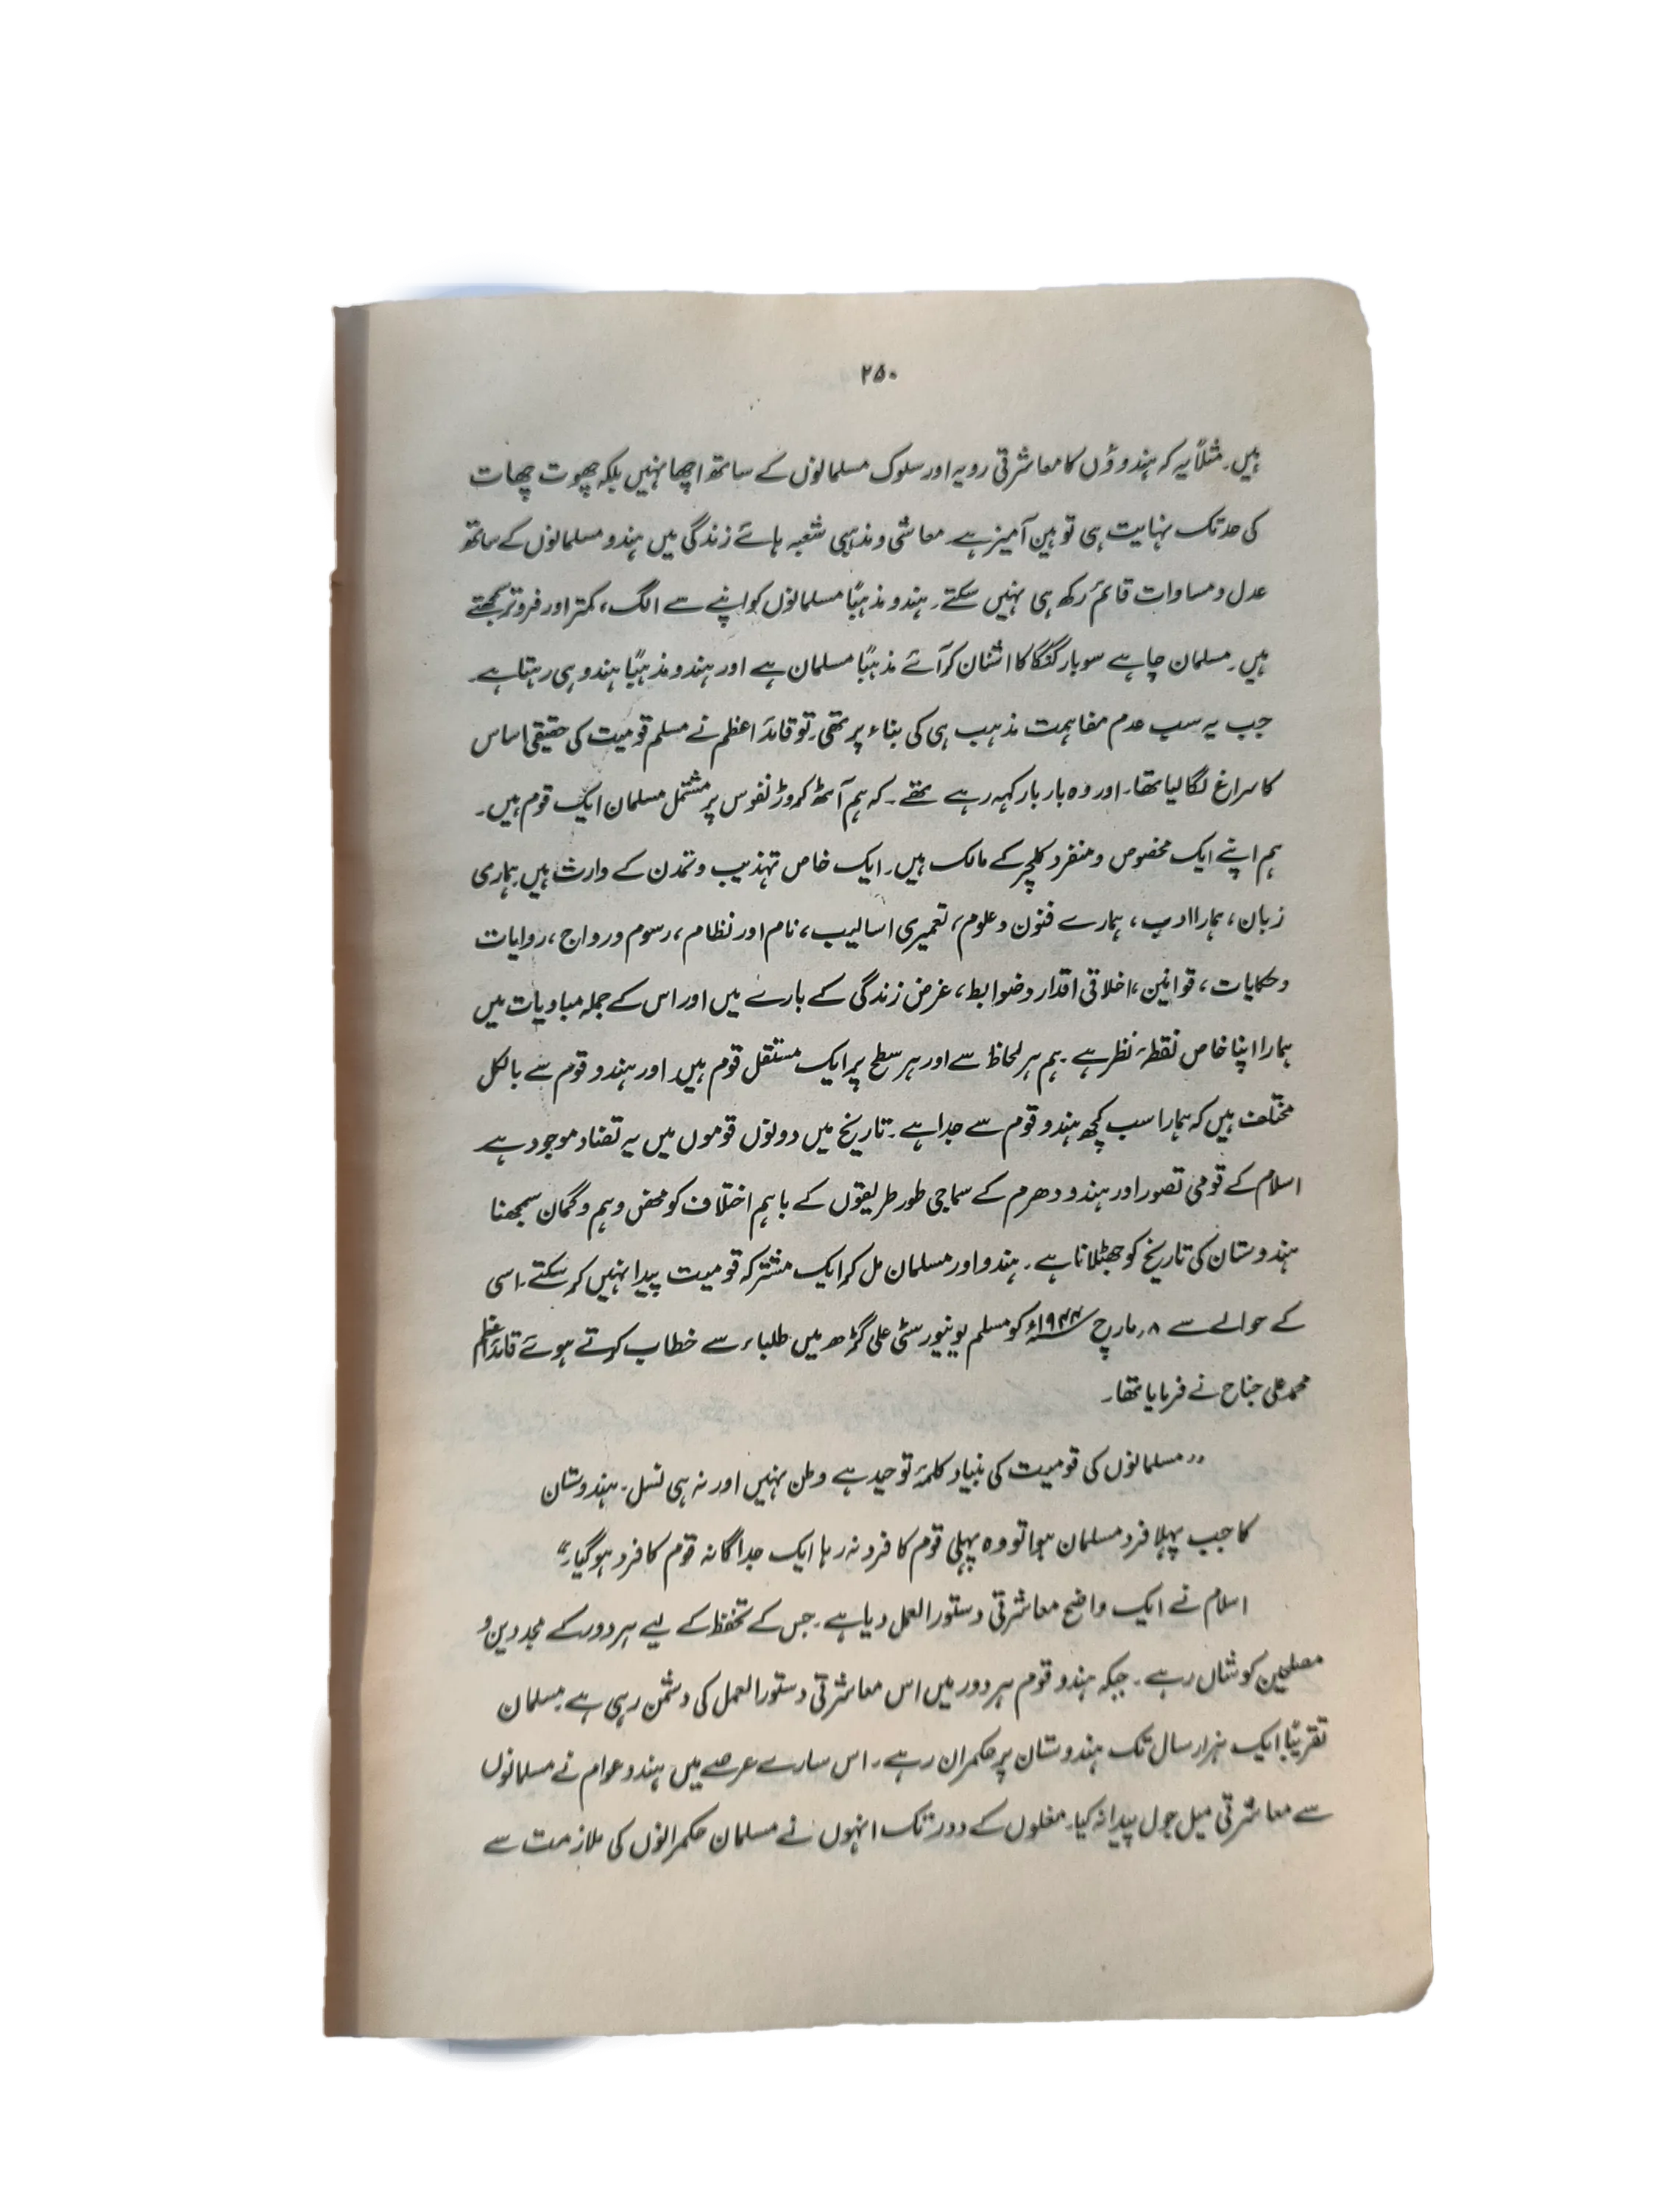 ۲۵۰
ہیں۔ مثلاً یہ کہ ہندوؤں کا معاشرتی رویہ اور سلوک مسلمانوں کے ساتھ اچھا نہیں بلکہ چھوت چھات
کی حد تک نہایت ہی توہین آمیز ہے۔ معاشی و مذہبی شعبہ ہائے زندگی میں ہندو مسلمانوں کے ساتھ
عدل و مساوات قائم رکھ ہی نہیں سکتے۔ ہندو مذہباً مسلمانوں کو اپنے سے الگ، کمتر اور فروتر سمجھتے
ہیں۔ مسلمان چاہے سو بار گنگا کا اشنان کر آئے مذہباً مسلمان ہے اور ہندو مذہباً ہندو ہی رہتا ہے۔
جب یہ سب عدم مفاہمت مذہب ہی کی بناء پر تھی۔ تو قائد اعظم نے مسلم قومیت کی حقیقی اساس
کا سراغ لگا لیا تھا۔ اور وہ بار بار کہہ رہے تھے۔ کہ ہم آٹھ کروڑ نفوس پر مشتمل مسلمان ایک قوم ہیں۔
ہم اپنے ایک مخصوص و منفرد کلچر کے مالک ہیں۔ ایک خاص تہذیب و تمدن کے وارث ہیں۔ ہماری
زبان، ہمارا ادب، ہمارے فنون و علوم، تعمیری اسالیب، نام اور نظام، رسوم و رواج، روایات
و حکایات، قوانین، اخلاقی اقدار و ضوابط، غرض زندگی کے بارے میں اور اس کے جملہ مبادیات میں
ہمارا اپنا خاص نقطۂ نظر ہے۔ ہم ہر لحاظ سے اور ہر سطح پر ایک مستقل قوم ہیں اور ہندو قوم سے بالکل
مختلف ہیں کہ ہمارا سب کچھ ہندو قوم سے جدا ہے۔ تاریخ میں دونوں قوموں میں یہ تضاد موجود ہے
اسلام کے قومی تصور اور ہندو دھرم کے سماجی طور طریقوں کے باہم اختلاف کو محض وہم و گمان سمجھنا
ہندوستان کی تاریخ کو جھٹلانا ہے۔ ہندو اور مسلمان مل کر ایک مشترکہ قومیت پیدا نہیں کر سکتے۔ اسی
کے حوالے سے ۸؍ مارچ ۱۹۴۴ء کو مسلم یونیورسٹی علی گڑھ میں طلباء سے خطاب کرتے ہوئے قائد اعظم
محمد علی جناح نے فرمایا تھا۔
”مسلمانوں کی قومیت کی بنیاد کلمۂ توحید ہے وطن نہیں اور نہ ہی نسل۔ ہندوستان
کا جب پہلا فرد مسلمان ہوا تو وہ پہلی قوم کا فرد نہ رہا ایک جداگانہ قوم کا فرد ہو گیا۔“
اسلام نے ایک واضح معاشرتی دستور العمل دیا ہے۔ جس کے تحفظ کے لیے ہر دور کے مجددین و
مصلحین کوشاں رہے۔ جبکہ ہندو قوم ہر دور میں اس معاشرتی دستور العمل کی دشمن رہی ہے۔ مسلمان
تقریباً ایک ہزار سال تک ہندوستان پر حکمران رہے۔ اس سارے عرصے میں ہندو عوام نے مسلمانوں
سے معاشرتی میل جول پیدا نہ کیا۔ مغلوں کے دور تک انہوں نے مسلمان حکمرانوں کی ملازمت سے